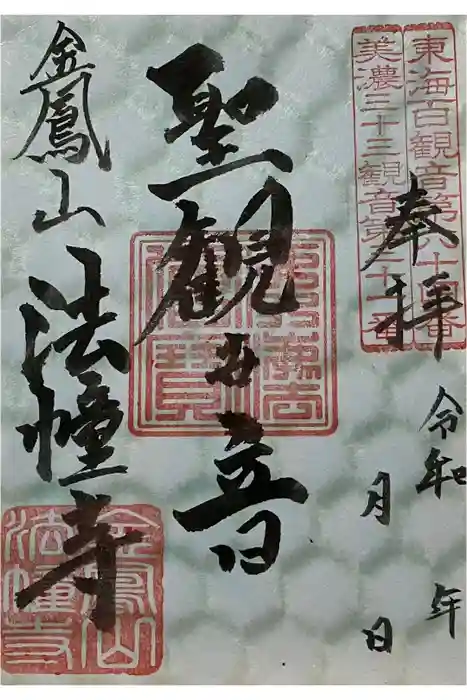 東海百観音第六十四番
美濃三十三観音第三十一番
奉拝
令和 年
月 日
聖観世音
金鳳山 法幢寺
金鳳山
法幢寺